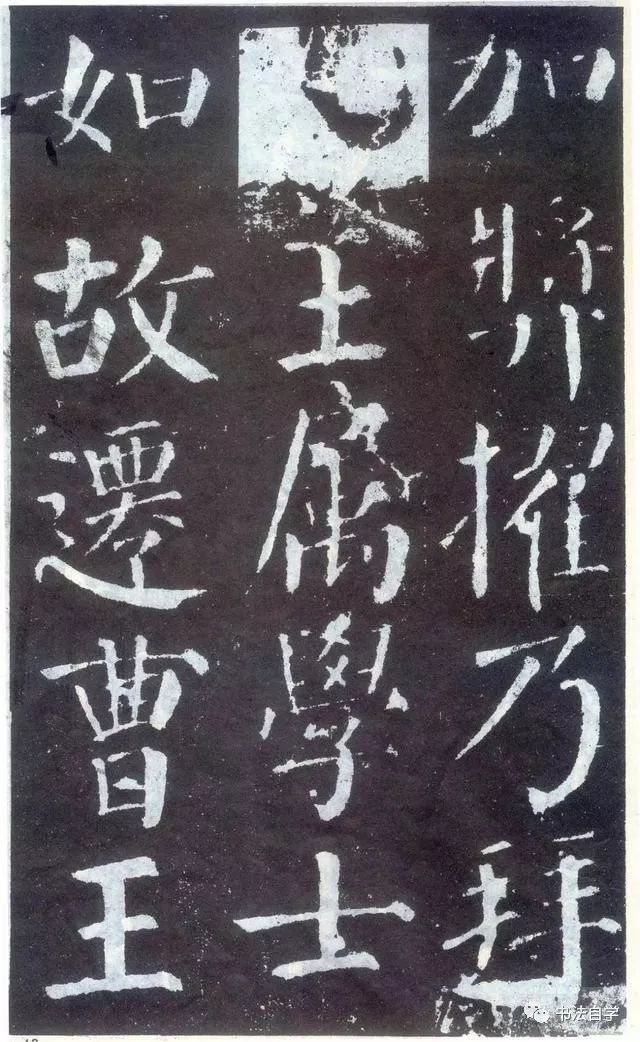 加獎擢乃拜
王属學士
如故遷曹王
书法自学